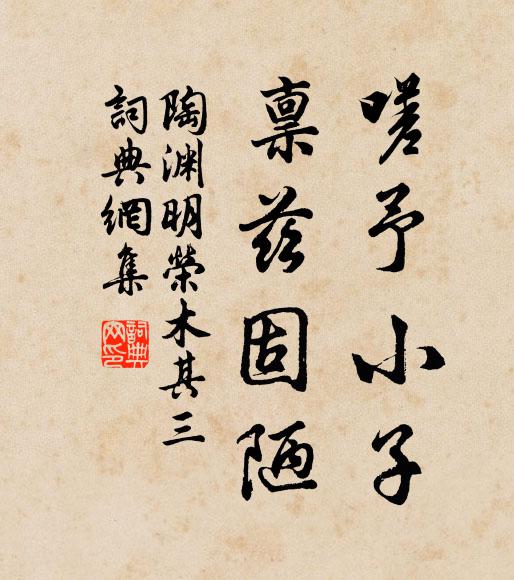 嗟予小子
禀兹固陋
陶渊明榮木其三
詞典網集
詞典网印